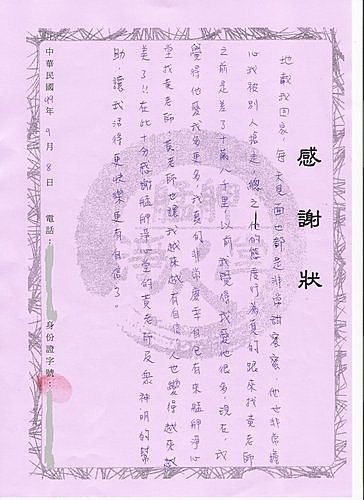 感謝狀
載我回家,每天見面也都是非常甜蜜蜜,他也非常擔
心我被別人搶走,總之,他的態度行為真的跟來找黃老師
之前是差了十萬八千里,以前我覺得我愛他很多,現在,我
覺得他愛我多更多,我真的非常慶幸自己有來艋舺淨心
堂找黃老師,黃老師也讓我越來越有自信,人也變得越來越
美了!!在此十分感謝艋舺淨心堂的黃老師及眾神明的幫
助,讓我活得更快樂更有自信了。
中華民國99年9月8日 電話: 身份證字號: